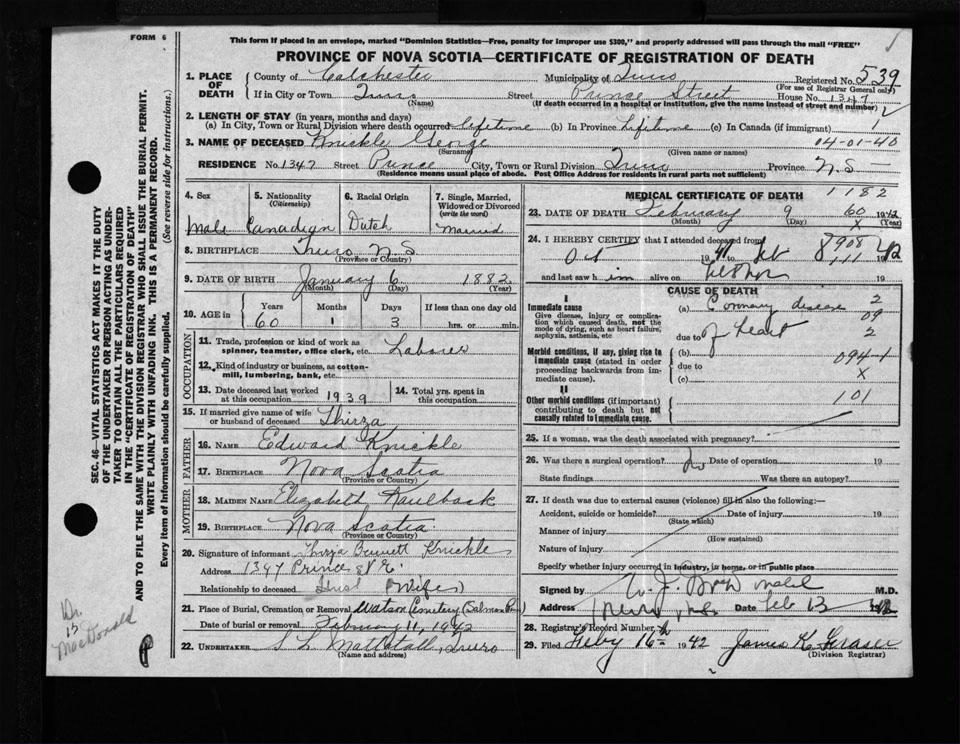 FORM 6
This form if placed in an envelope, marked "Dominion Statistics—Free, penalty for improper use $300," and properly addressed will pass through the mail "FREE"
PROVINCE OF NOVA SCOTIA—CERTIFICATE OF REGISTRATION OF DEATH
1. PLACE OF DEATH
County of Colchester Municipality of Truro Registered No. 539
(For use of Registrar General only)
If in City or Town Truro Street Prince Street House No. 1347
(Name) (If death occurred in a hospital or institution, give the name instead of street and number)
2. LENGTH OF STAY (in years, months and days)
(a) In City, Town or Rural Division where death occurred lifetime (b) In Province Lifetime (c) In Canada (if immigrant) 1
3. NAME OF DECEASED Knickle George 04-01-40
(Surname) (Given name or names)
RESIDENCE No. 1347 Street Prince City, Town or Rural Division Truro Province N.S.
(Residence means usual place of abode. Post Office Address for residents in rural parts not sufficient)
4. Sex 5. Nationality (Citizenship) 6. Racial Origin 7. Single, Married, Widowed or Divorced (write the word)
Male Canadian Dutch Married
8. BIRTHPLACE Truro N.S
(Province or Country)
9. DATE OF BIRTH January 6 1882
(Month) (Day) (Year)
10. AGE in Years Months Days If less than one day old
60 1 3 hrs. or min.
OCCUPATION
11. Trade, profession or kind of work as spinner, teamster, office clerk, etc. Laborer
12. Kind of industry or business, as cotton-mill, lumbering, bank, etc.
13. Date deceased last worked at this occupation 1939
14. Total yrs. spent in this occupation
15. If married give name of wife or husband of deceased Thirza
FATHER
16. NAME Edward Knickle
17. BIRTHPLACE Nova Scotia
(Province or Country)
MOTHER
18. MAIDEN NAME Elizabeth Kaulback
19. BIRTHPLACE Nova Scotia
(Province or Country)
20. Signature of informant Thirza Bennett Knickle
Address 1347 Prince St
Relationship to deceased (Wife)
21. Place of Burial, Cremation or Removal Watson Cemetery (Salmon
Date of burial or removal February 11, 1942
22. UNDERTAKER S L Mattatall, Truro
(Name and address)
MEDICAL CERTIFICATE OF DEATH 1182
23. DATE OF DEATH February 9 60 1942
(Month) (Day) X (Year)
24. I HEREBY CERTIFY that I attended deceased from 8908
Oct 19 41 to Feb 19 42
and last saw him alive on 19
CAUSE OF DEATH
I
Immediate cause
Give disease, injury or complication which caused death, not the mode of dying, such as heart failure, asphyxia, asthenia, etc
(a) Coronary disease 2
09
due to of heart 2
Morbid conditions, if any, giving rise to immediate cause (stated in order proceeding backwards from immediate cause).
(b) 094-1
due to X
(c)
II
Other morbid conditions (if important) contributing to death but not causally related to immediate cause.
101
25. If a woman, was the death associated with pregnancy?
26. Was there a surgical operation? no Date of operation 19
State findings Was there an autopsy?
27. If death was due to external causes (violence) fill in also the following:—
Accident, suicide or homicide? Date of injury 19
(State which)
Manner of injury
(How sustained)
Nature of injury
Specify whether injury occurred in industry, in home, or in public place
Signed by M.D.
Address Date Feb 13
28. Registrar's Record Number
29. Filed Feby 16th 1942 James K Fraser
(Division Registrar)
SEC. 46—VITAL STATISTICS ACT MAKES IT THE DUTY
OF THE UNDERTAKER OR PERSON ACTING AS UNDERTAKER
TO OBTAIN ALL THE PARTICULARS REQUIRED
IN THE "CERTIFICATE OF REGISTRATION OF DEATH"
AND TO FILE THE SAME WITH THE DIVISION REGISTRAR WHO SHALL ISSUE THE BURIAL PERMIT.
WRITE PLAINLY WITH UNFADING INK. THIS IS A PERMANENT RECORD.
Every item of Information should be carefully supplied. (See reverse side for instructions.)
Dr.
is
MacDonald